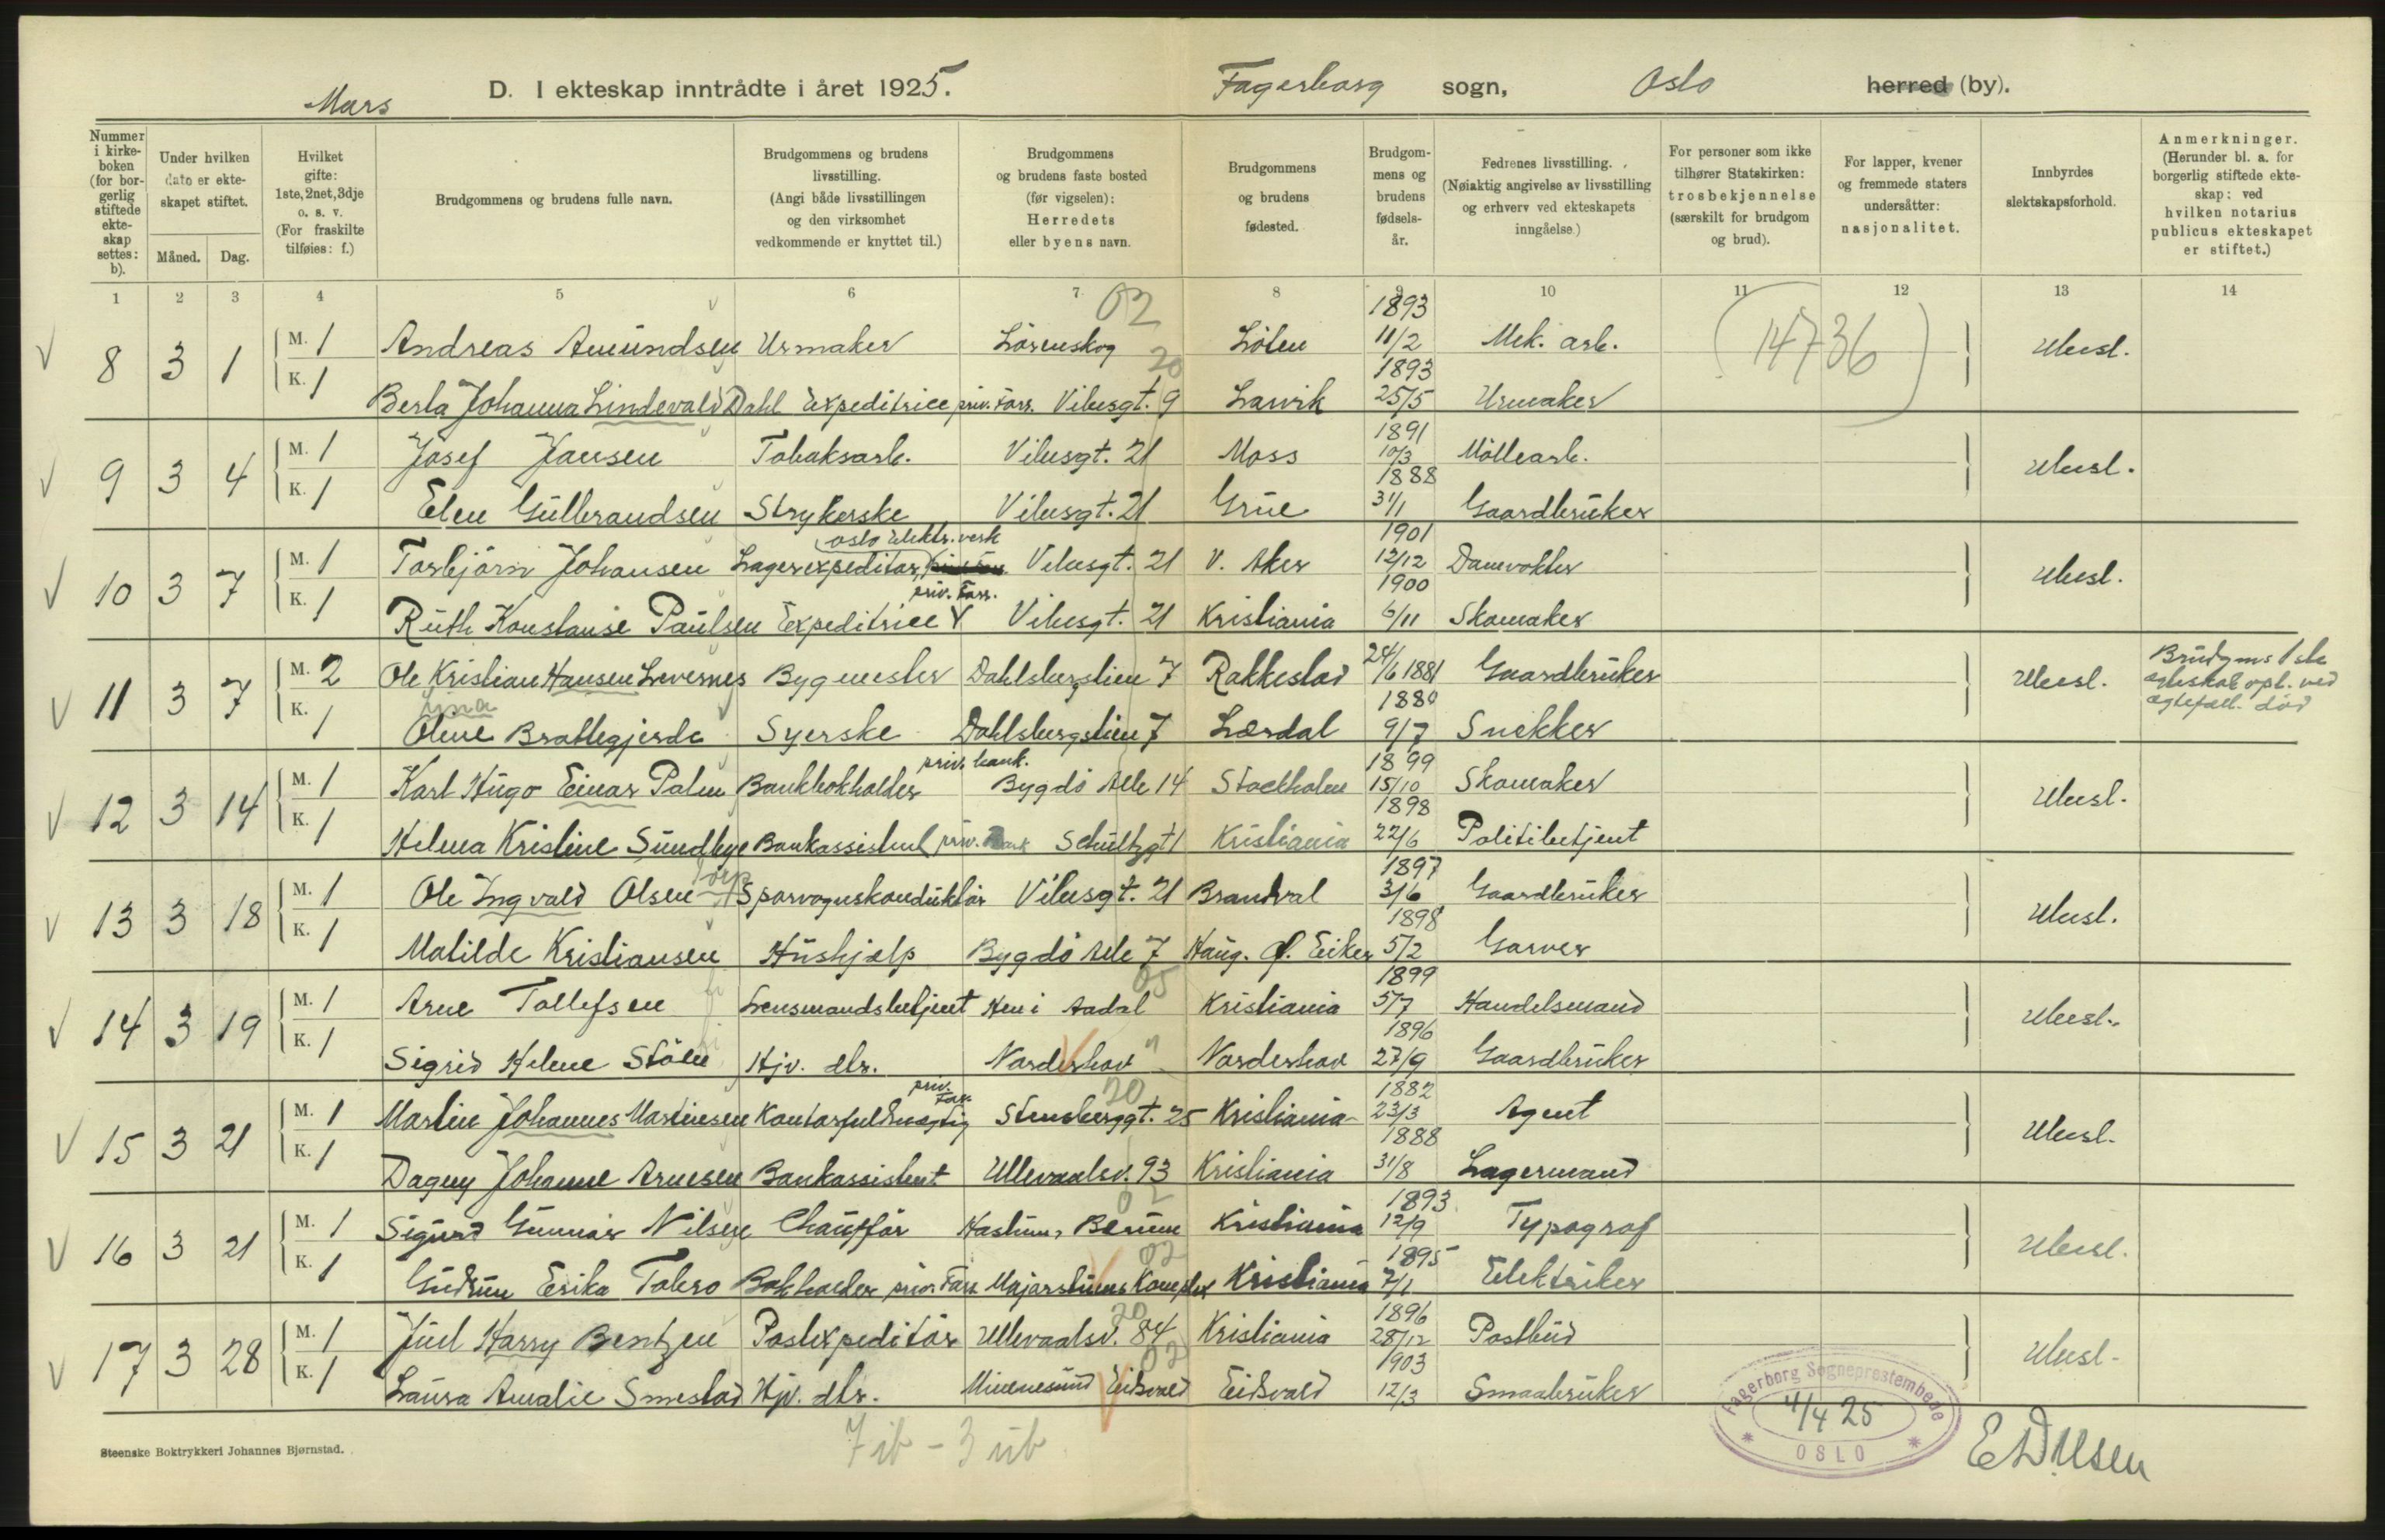 Mars
D. I ekteskap inntrådte i året 1925.
Fagerborg sogn, Oslo herred (by).
Nummer i kirkeboken (for borgerlig stiftede ekteskap settes: b).
Under hvilken dato er ekteskapet stiftet.
Måned. Dag.
Hvilket gifte: 1ste, 2net, 3dje o. s. v. (For fraskilte tilføies: f.)
Brudgommens og brudens fulle navn.
Brudgommens og brudens livsstilling. (Angi både livsstillingen og den virksomhet vedkommende er knyttet til.)
Brudgommens og brudens faste bosted (før vigselen): Herredets eller byens navn.
Brudgommens og brudens fødested.
Brudgommens og brudens fødselsår.
Fedrenes livsstilling. (Nøiaktig angivelse av livsstilling og erhverv ved ekteskapets inngåelse.)
For personer som ikke tilhører Statskirken: trosbekjennelse (særskilt for brudgom og brud).
For lapper, kvener og fremmede staters undersåtter: nasjonalitet.
Innbyrdes slektskapsforhold.
Anmerkninger. (Herunder bl. a. for borgerlig stiftede ekteskap: ved hvilken notarius publicus ekteskapet er stiftet.)
1 2 3 4 5 6 7 8 9 10 11 12 13 14
02
8 3 1 M. 1 Andreas Amundsen Urmaker Lörenskog Löten 1893 11/2 Mek. arb. (14736) Ubesl.
20
K. 1 Berta Johanna Lindevald Dahl Expeditrice priv. Forr. Vibesgt. 9 Larvik 1893 25/5 Urmaker
9 3 4 M. 1 Josef Jansen Tobaksarb. Vibesgt. 21 Moss 1891 10/3 Möllearb. Ubesl.
K. 1 Elen Gulbrandsen Strykerske Vibesgt. 21 Grue 1888 31/1 Gaardbruker
Oslo Elektr. verk
10 3 7 M. 1 Torbjörn Johansen Lagerexpeditör, Vibesgt. 21 V. Aker 1901 12/12 Damvokter Ubesl.
priv. Forr.
K. 1 Ruth Konstanse Paulsen Expeditrice Vibesgt. 21 Kristiania 1900 6/11 Skomaker
11 3 7 M. 2 Ole Kristian Hansen Levernes Bygmester Dahlsbergstien 7 Rakkestad 24/6 1881 Gaardbruker Ubesl. Brudgms 1ste ægteskab opl. ved ægtefæll. död
K. 1 Oline Brattegjerde Syerske Dahlsbergstien 7 Lærdal 1880 9/7 Snekker
priv. bank.
12 3 14 M. 1 Karl Hugo Einar Palm Bankbokholder Bygdö Alle 14 Stockholm 1899 15/10 Skomaker Ubesl.
K. 1 Helma Kristine Sundbye Bankassistent priv. Bank Schultzgt 1 Kristiania 1898 22/6 Politibetjent
13 3 18 M. 1 Ole Ingvald Olsen Torp Sporvognskonduktör Vibesgt. 21 Brandval 1897 3/6 Gaardbruker Ubesl.
K. 1 Matilde Kristiansen Hushjælp Bygdö Alle 7 Haug. Ø. Eiker 1898 5/2 Garver
05
14 3 19 M. 1 Arne Tollefsen Lensmandsbetjent Hen i Aadal Kristiania 1899 5/7 Handelsmand Ubesl.
K. 1 Sigrid Helene Stölen Hjv. dtr. Norderhov Norderhov 1896 27/9 Gaardbruker
priv. Forr. 20
15 3 21 M. 1 Martin Johannes Martinsen Kontorfuldmægtig Stensberggt. 25 Kristiania 1882 23/3 Agent Ubesl.
K. 1 Dagny Johanne Arnesen Bankassistent Ullevaalsv. 93 Kristiania 1888 31/8 Lagermand
02
16 3 21 M. 1 Sigurd Gunnar Nilsen Chaufför Haslum, Bærum Kristiania 1893 12/9 Typograf Ubesl.
02
K. 1 Gudrun Erika Tobro Bokholder priv. Forr. Majorstuens Komplex Kristiania 1895 7/1 Elektriker
20
17 3 28 M. 1 Juel Harry Bentzen Postexpeditör Ullevaalsv. 84 Kristiania 1896 28/12 Postbud Ubesl.
02
K. 1 Laura Amalie Smestad Hjv. dtr. Minnesund Eidsvold Eidsvold 1903 12/3 Smaabruker
7 ib - 3 ub
Fagerborg Sogneprestembede
4/4 25
OSLO
Steenske Boktrykkeri Johannes Bjørnstad.